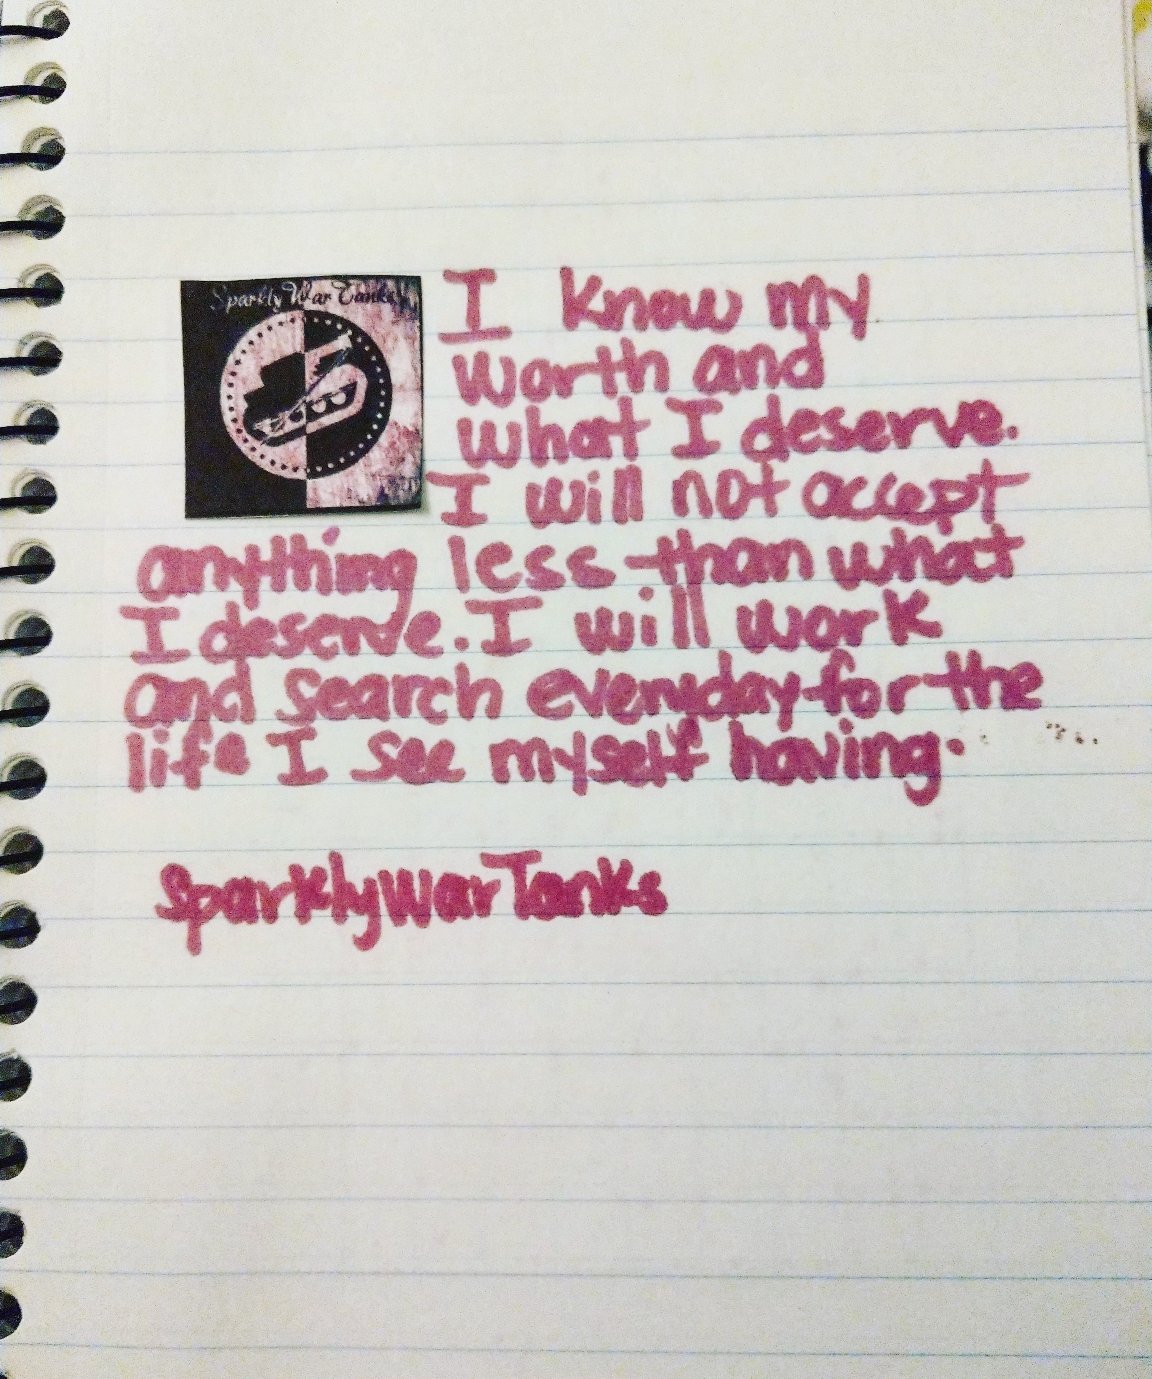 Sparkly War Tanks
I know my
worth and
what I deserve.
I will not accept
anything less than what
I deserve. I will work
and search everyday for the
life I see myself having.
SparklyWarTanks